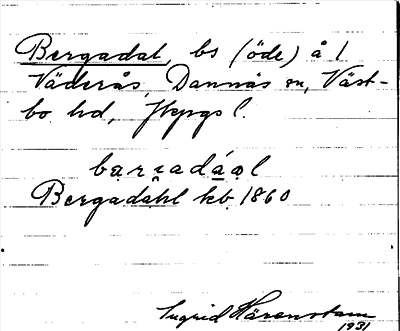 Bergadal bs (öde) å 1
Väderås, Dannäs sn, Väst-
bo hd, Jkpgs l.
barɛadáαl
Bergadahl kb 1860
Ingrid Härenstam
1931